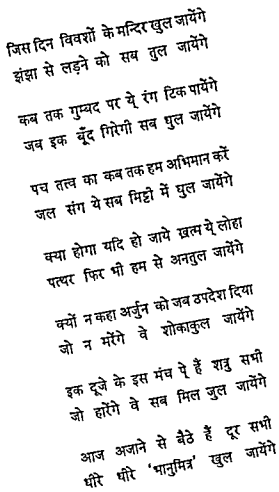 जिस दिन विवशों के मन्दिर खुल जायेंगे
झंझा से लड़ने को सब तुल जायेंगे
कब तक गुम्बद पर ये् रंग टिक पायेंगे
जब इक बूँद गिरेगी सब धुल जायेंगे
पच तत्व का कब तक हम अभिमान करें
जल संग ये सब मिट्टी में घुल जायेंगे
क्या होगा यदि हो जाये ख़त्म ये् लोहा
पत्थर फिर भी हम से अनतुल जायेंगे
क्यों न कहा अर्जुन को जब उपदेश दिया
जो न मरेंगे वे शोकाकुल जायेंगे
इक दूजे के इस मंच पे् हैं शत्रु सभी
जो हारेंगे वे सब मिल जुल जायेंगे
आज अजाने से बैठे हैं दूर सभी
धीरे धीरे 'भानुमित्र' खुल जायेंगे